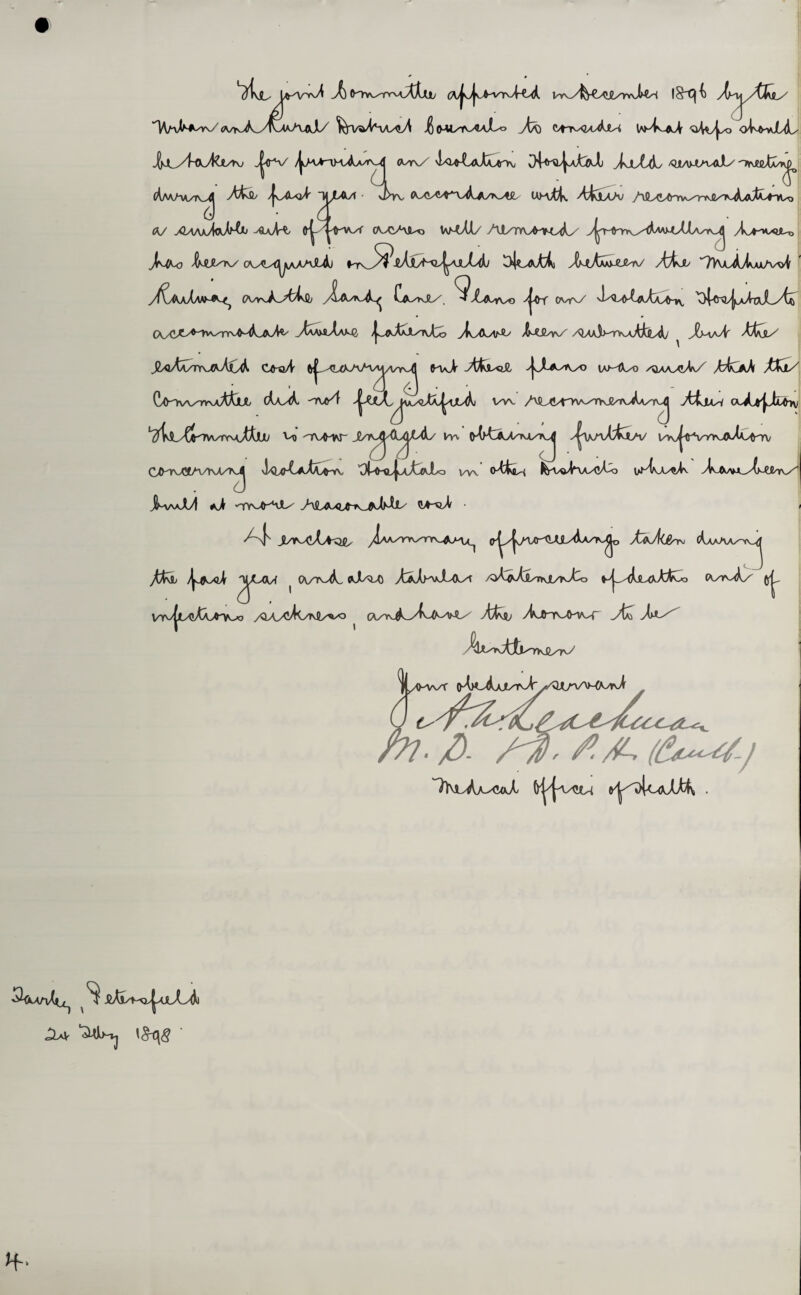 The Joint Committee appointed in September 1896 by the
Urban and Rural District Councils to consider what steps should
be taken for providing an Isolation Hospital held several meetings
during the past year. In accordance with their recommendations
a suitable site of four acres well removed from dwelling houses
has been acquired on Petersfield Heath between the Midhurst
Road and the Lane. Plans for an Isolation Hospital to
accommodate twelve patients have been submitted, but the
estimated cost of carrying out these plans was such that the
Committee did not feel justified in recommending their adoption.
The Committee is now engaged in obtaining further information
concerning Isolation Hospitals in other Districts which have been
built at moderate cost.
I enclose summary of proceedings taken during
the past year, and also tabular statements of deaths and of
infectious sickness, and have the honour to be
Gentlemen
Your obedient servant
M.D. D.P.H. (Camb.)
Medical Officer of Health.
Petersfield
1898
4.